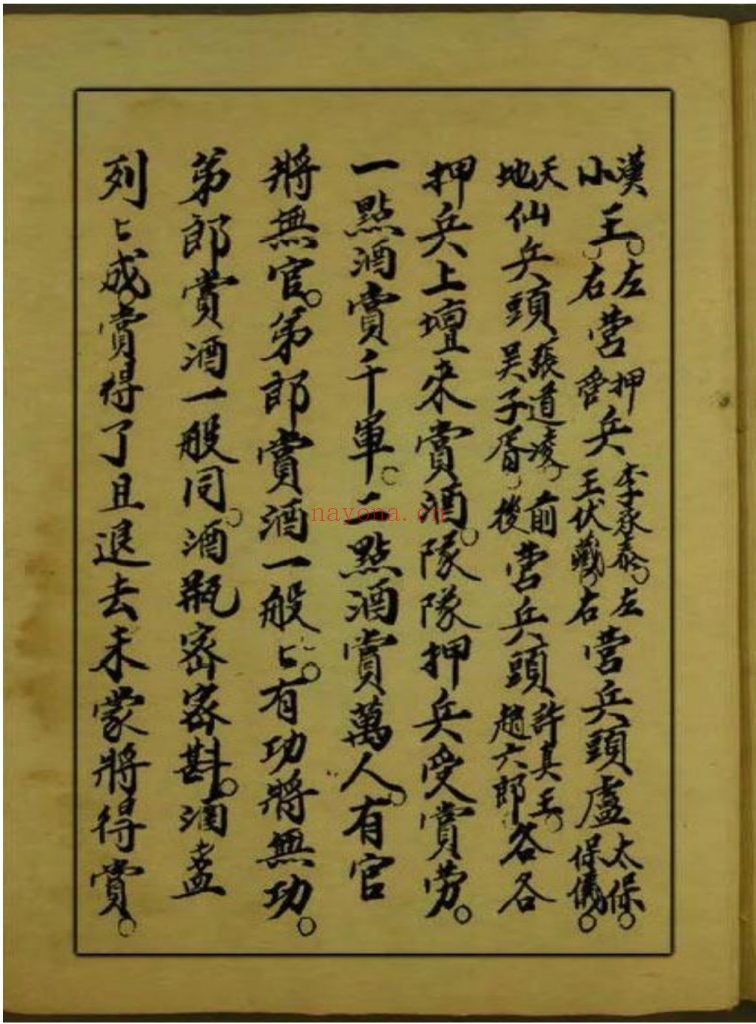 漢小王。左右营押管兵李承泰。王伏藏。左右营兵頭盧太保。保儀。
天地仙兵頭張道凌。吴子胥。前後营兵頭許真王。趙六郎。各各
押兵上壇来賞酒。隊隊押兵受賞劳。
一點酒賞千軍。二點酒賞萬人。有官
將無官。弟郎賞酒一般〻。有功將無功。
弟郎賞酒一般同。酒瓶密密斟。酒盞
列〻成。賞得了且退去未蒙將得賞。
nayona.cn